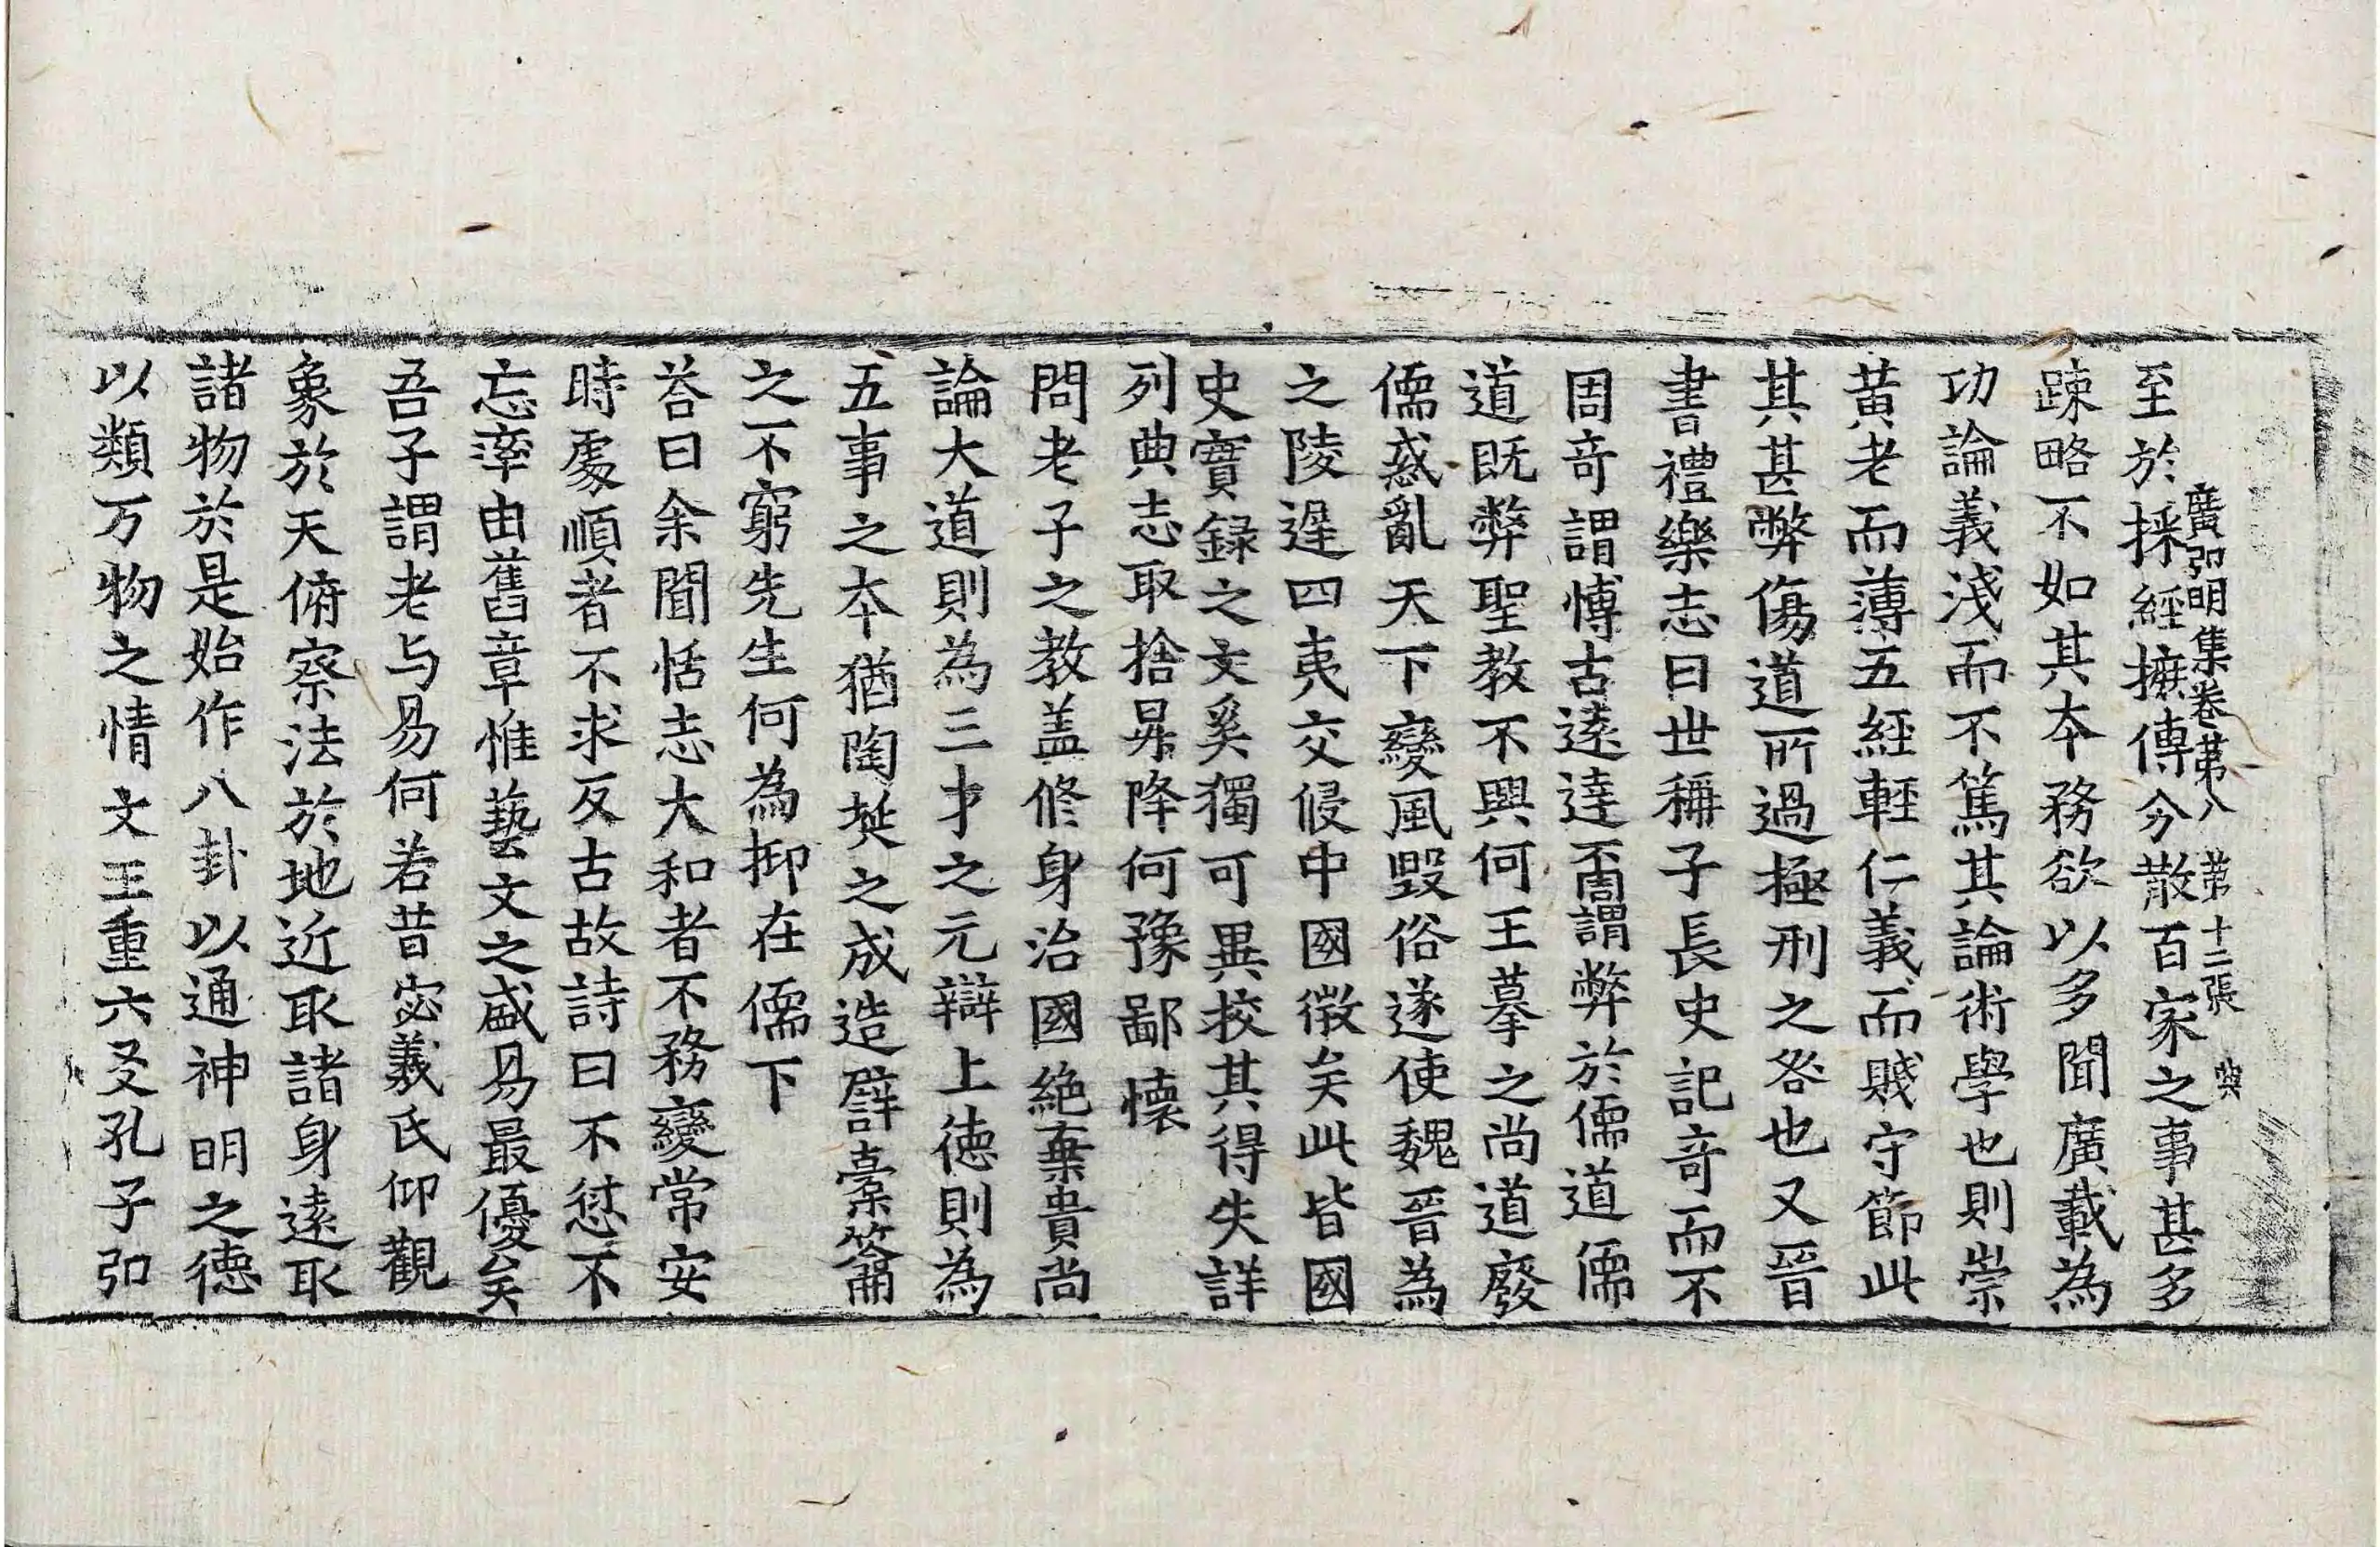 廣弘明集卷苐八 苐十二張 典
至於採經摭傳分散百家之事甚多
踈略不如其本務欲以多聞廣載為
功論義淺而不篤其論術學也則崇
黃老而薄五經輕仁義而賤守節此
其甚弊傷道所過極刑之咎也又晉
書禮樂志曰世稱子長史記奇而不
周奇謂博古遠達不周謂弊於儒道儒
道既弊聖教不興何王摹之尚道廢
儒惑亂天下變風毀俗遂使魏晉為
之陵遲四夷交侵中國徵矣此皆國
史實録之文奚獨可異挍其得失詳
列典志取捨昇降何豫鄙懷
問老子之教盖修身治國絶棄貴尚
論大道則為三才之元辯上德則為
五事之本猶陶埏之成造譬橐籥
之不窮先生何為抑在儒下
荅曰余聞恬志大和者不務變常安
時處順者不求反古故詩曰不愆不
忘率由舊章惟藝文之盛易最優矣
吾子謂老与易何若昔宓義氏仰觀
象於天俯察法於地近取諸身遠取
諸物於是始作八卦以通神明之德
以類万物之情文王重六爻孔子弘